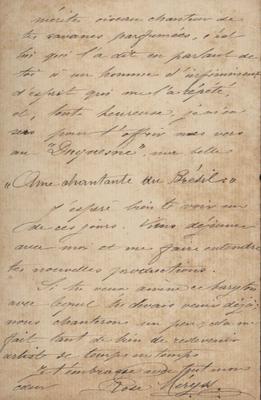 mérites oiseau chanteur de
tes savanes parfumées, c'est
lui qui l'a dit en parlant de
toi à un homme d'infiniment
d'esprit qui me l'a répété
et, toute heureuse, je
pour t'offrir mes vers
au "Duquesne", ma belle
"Ame chantante du Brésil"
J'espère bien te voir un
de ces jours. Viens déjeuner
avec moi et me faire entendre
tes nouvelles productions.
Si tu veux amène ce baryton
avec lequel tu devais venir déjà,
nous chanterons un peu, cela me
fait tant de bien de redevenir
artiste de temps en temps
Je t'embrasse de tout mon
cœur Rose Méryss